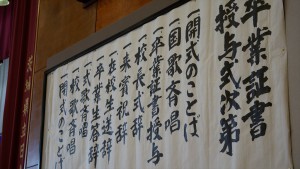 卒業証書
授与式次第
一開式のことば
一国歌斉唱
一卒業証書授与
一校長式辞
一来賓祝辞
一在校生送辞
一卒業生答辞
一式歌斉唱
一校歌斉唱
一閉式のことば